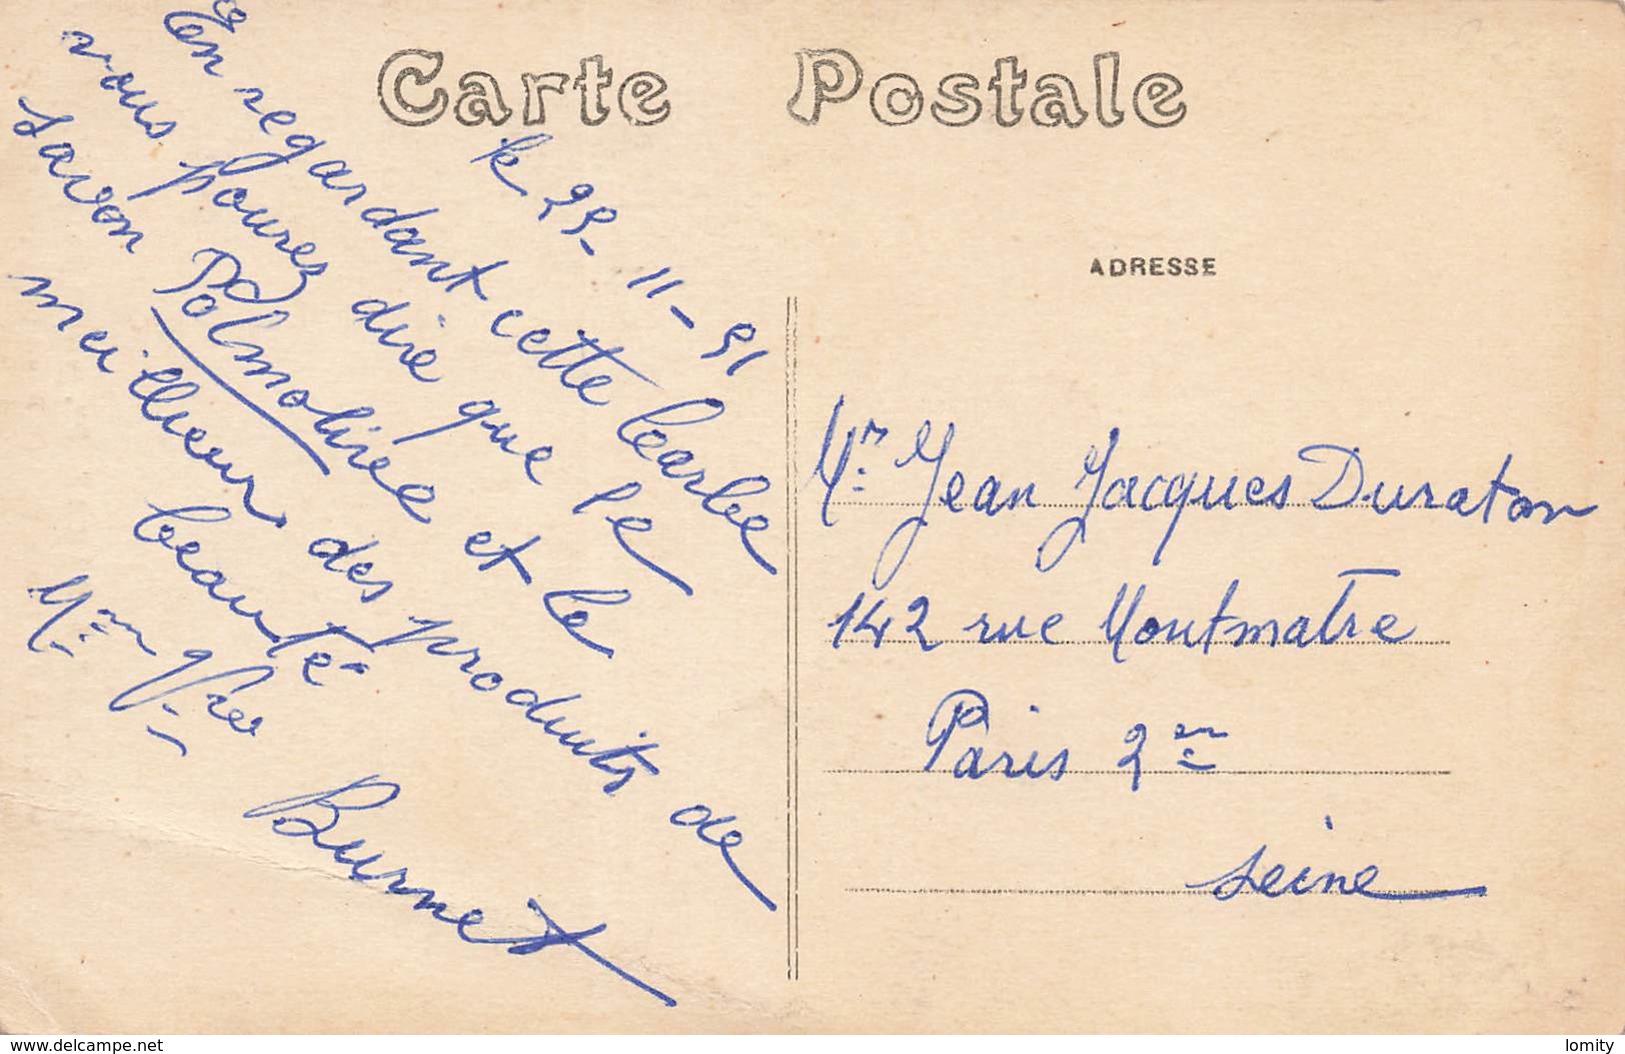 Carte Postale
le 25-11-51
En regardant cette barbe
vous pourez dire que le
savon Polmolive et le
meilleur des produits de
beauté
Burnet
ADRESSE
Mr Jean Jacques Duraton
142 rue Montmatre
Paris 2en
seine
www.delcampe.net
lomity